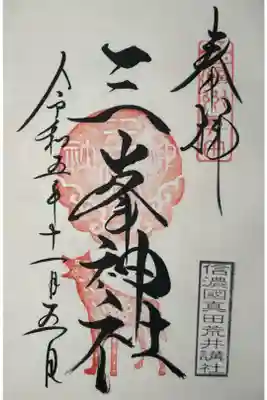 奉拝
三峯神社
令和五年十一月五日
信濃國真田荒井講社